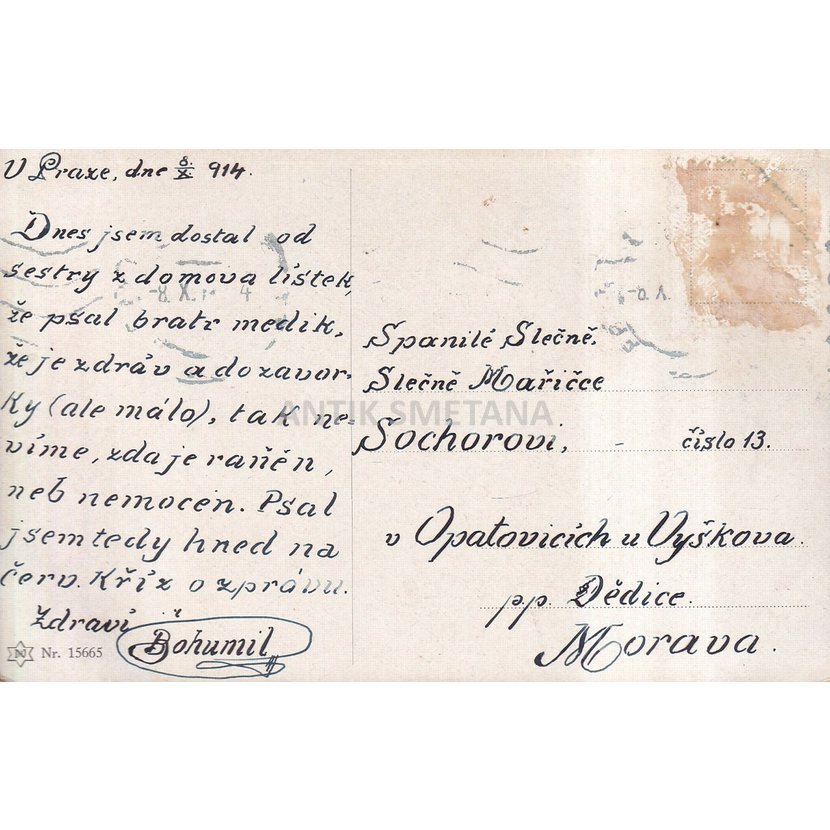 V Praze, dne 8./X. 914.
Dnes jsem dostal od
sestry z domova lístek,
že psal bratr medik,
že je zdráv a do závor-
ky (ale málo), tak ne-
víme, zda je raněn,
neb nemocen. Psal
jsem tedy hned na
červ. Kříž o zprávu.
Zdraví
Bohumil
Nr. 15665
Spanilé Slečně,
Slečně Mařičce
Sochorovi, - číslo 13.
v Opatovicích u Vyškova.
pp. Dědice.
Morava.
ANTIK SMETANA